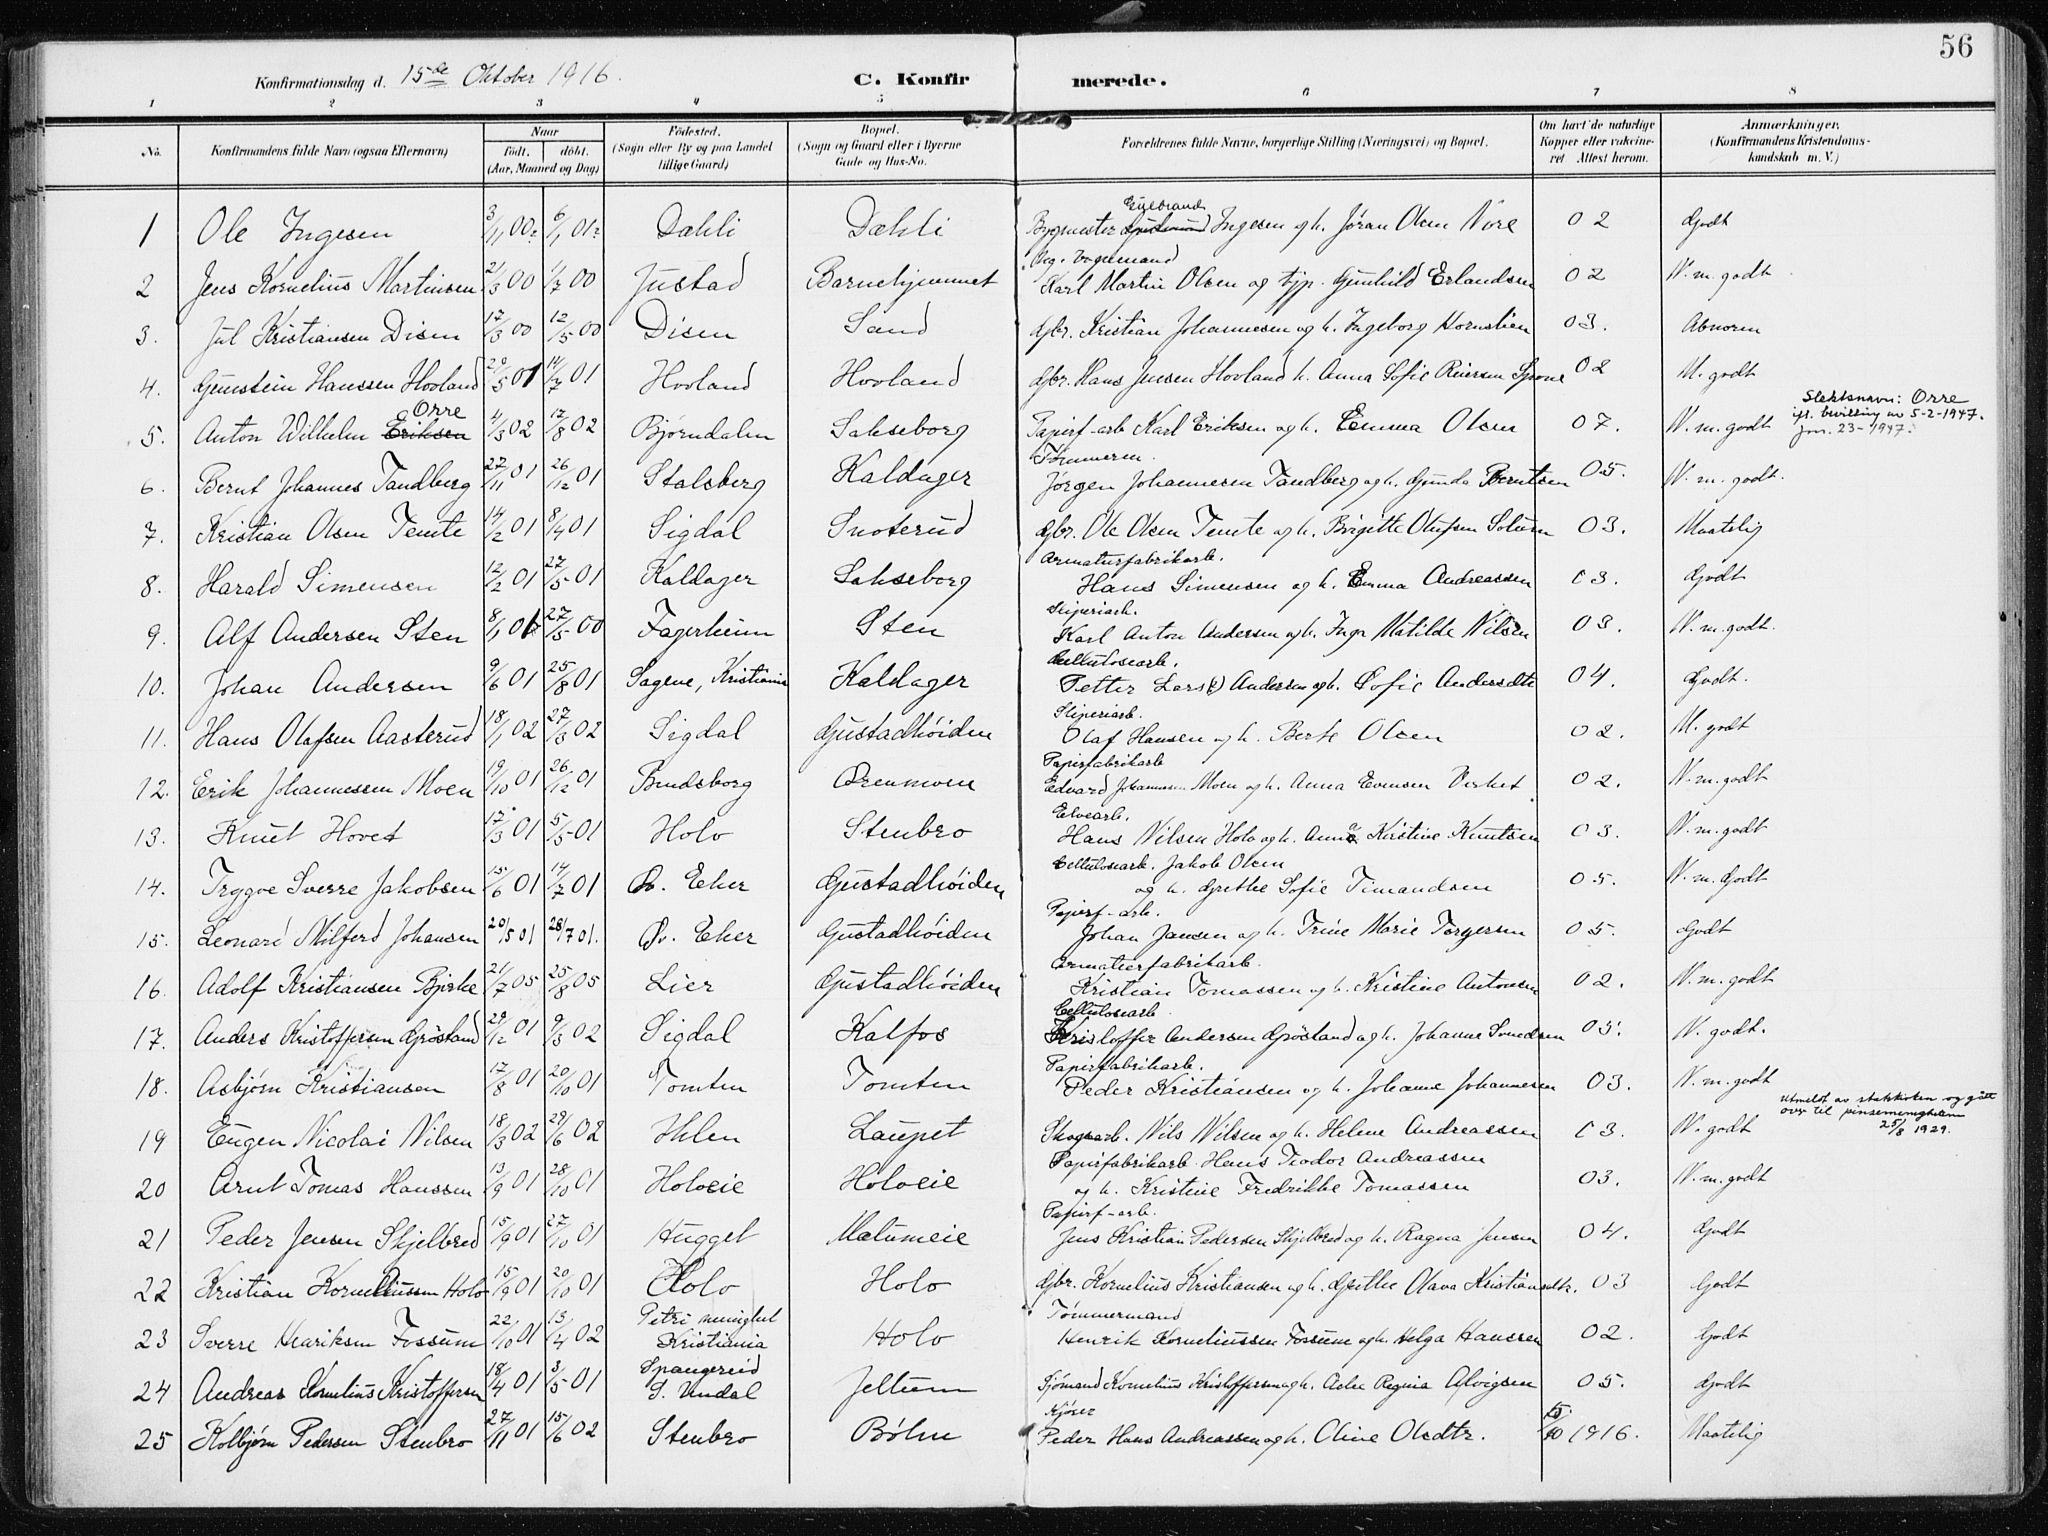 56
Konfirmationsdag d. 15de Oktober 1916. C. Konfirmerede.
1 2 3 4 5 6 7 8
No. Konfirmandens fulde Navn (ogsaa Efternavn) Naar født, døbt. (Aar, Maaned og Dag) Fødested. (Sogn eller By og paa Landet tillige Gaard) Bopæl. (Sogn og Gaard eller i Byerne Gade og Hus-No. Forældrenes fulde Navne, borgerlige Stilling (Næringsvei) og Bopæl. Om havt de naturlige Kopper eller vakcineret Attest herom. Anmærkninger. (Konfirmandens Kristendomskundskab m. V.)
1 Ole Ingesen 3/11 00 6/1 01 Dæhli Dæhli Bygmester Gulbrand Ingesen og h. Jøran Olsen Nore 02 Godt
2 Jens Kornelius Martinsen 21/3 00 1/7 00 Justad Barnehjemmet Vognmand Karl Martin Olsen og tjp. Gunhild Erlandsen 02 N. m. godt
3. Jul Kristiansen Disen 17/3 00 12/5 00 Disen Sand Gbr. Kristian Johannesen og h. Ingeborg Hornslien 03. Abnorm
4. Gunstein Hanssen Hovland 20/5 01 14/7 01 Hovland Hovland Gbr. Hans Jensen Hovland h. Anna Sofie Reiersen 02 M. godt
5. Anton Wilhelm Eriksen Orre 4/3 02 17/8 02 Bjørndalen Sakseborg Papirf-arb Karl Eriksen og h. Emma Olsen 07. N. m. godt Slektsnavn: Orre ifl. bevilling av 5-2-1947. jnr. 23-1947.
6. Bernt Johannes Tandberg 27/11 01 26/12 01 Stalsberg Kaldager Tømmerm. Jørgen Johannesen Tandberg og h. Gunda Berntsen 05. N. m. godt.
7. Kristian Olsen Temte 14/2 01 8/4 01 Sigdal Snoterud Gbr. Ole Olsen Temte og h. Brigitte Olufsen Solum 03. Maatelig
8. Harald Simensen 12/2 01 27/5 01 Kaldager Sakseborg Armaturfabrikarb. Hans Simensen og h. Emma Andreassen 03. Godt
9. Alf Andersen Sten 8/1 01 27/5 00 Fagerheim Sten Sliperiarb. Karl Anton Andersen og h. Inga Matilde Nilsen 03. N. m. godt.
10. Johan Andersen 9/6 01 25/8 01 Sagene, Kristiania Kaldager Cellulosearb. Petter Lars(s) Andersen og h. Sofie Andersdtr 04. Godt.
11. Hans Olafsen Aasterud 18/1 02 27/3 02 Sigdal Gustadhøiden Sliperiarb. Olaf Hansen og h. Berte Olsen 02. M. godt
12. Erik Johannessen Moen 19/10 01 26/12 01 Bundsborg Ørenmoen Papirfabrikarb Edvard Johannesen Moen og h. Anna Evensen Verket 02. N. m. godt
13. Knut Hovet 17/3 01 5/5 01 Holo Stenbro Elvearb. Hans Nilsen Holo og h. Anna Kristine Knutsen 03. N. m. godt
14. Trygve Sverre Jakobsen 15/6 01 14/7 01 Øv. Eker Gustadhøiden Cellulosearb. Jakob Olsen og h. Grethe Sofie Timandsen 05. N. m. Godt
15. Leonard Milferd Johansen 20/5 01 28/7 01. Øv. Eker Gustadhøiden Papirf-arb. Johan Jansen og h. Trine Marie Torgersen 05. Godt
16. Adolf Kristiansen Bjerke 21/7 05 25/8 05 Lier Gustadhøiden Armaturfabrikarb. Kristian Tomassen og h. Kristine Antonsen 02. N. m. godt
17. Anders Kristoffersen Grøsland 29/12 01 9/3 02 Sigdal Kalfos Cellulosearb Kristoffer Andersen Grøsland og h. Johanne Svendsen 05. N. godt.
18. Asbjørn Kristiansen 17/8 01 20/10 01 Tomten Tomten Papirfabrikarb. Peder Kristiansen og h. Johanne Johannesen 03. N. m. godt
19 Eugen Nicolai Nilsen 18/3 02 29/6 02 Ihlen Laupet Skogsarb. Nils Nilsen og h. Helene Andreassen 03. N. godt Utmeldt av statskirken og gått over til pinsemenigheten 25/8 1929.
20 Arnt Tomas Hanssen 13/9 01 28/10 01 Holoeie Holoeie Papirfabrikarb. Hans Teodor Andreassen og h. Kristine Fredrikke Tomassen 03. N. m. godt
21 Peder Jensen Skjelbred 15/9 01 27/10 01 Hugget Melumeie Papirf-arb. Jens Kristian Pedersen Skjelbred og h. Ragna Jensen 04. Godt
22 Kristian Korneliussen Holo 15/9 01 20/10 01 Holo Holo Gbr. Kornelius Kristiansen og h. Grethe Olava Kristiansdtr. 03 Godt
23 Sverre Henriksen Fossum 22/10 01 13/4 02 Petri menighet Kristiania Holo Tømmermand Henrik Korneliussen Fossum og h. Helga Hanssen 02. Godt
24 Andreas Kornelius Kristoffersen 18/4 01 3/5 01 Spangereid S. Undal Jellum Sjømand Kornelius Kristoffersen og h. Regina Alvigsen 05. Godt
25 Kolbjørn Pedersen Stenbro 27/11 01 15/6 02 Stenbro Bøhn Kjører Peder Hans Andreassen og h. Oline Olsdtr. 5/10 1916. Maatelig